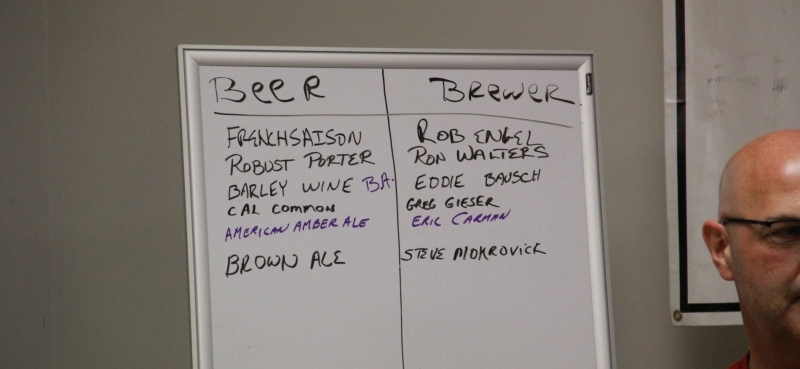 BEER BREWER
FRENCH SAISON ROB ENGEL
ROBUST PORTER RON WALTERS
BARLEY WINE B.A. EDDIE BAUSCH
CAL COMMON GREG GIESER
AMERICAN AMBER ALE ERIC CARMAN
BROWN ALE STEVE MOKROVICK